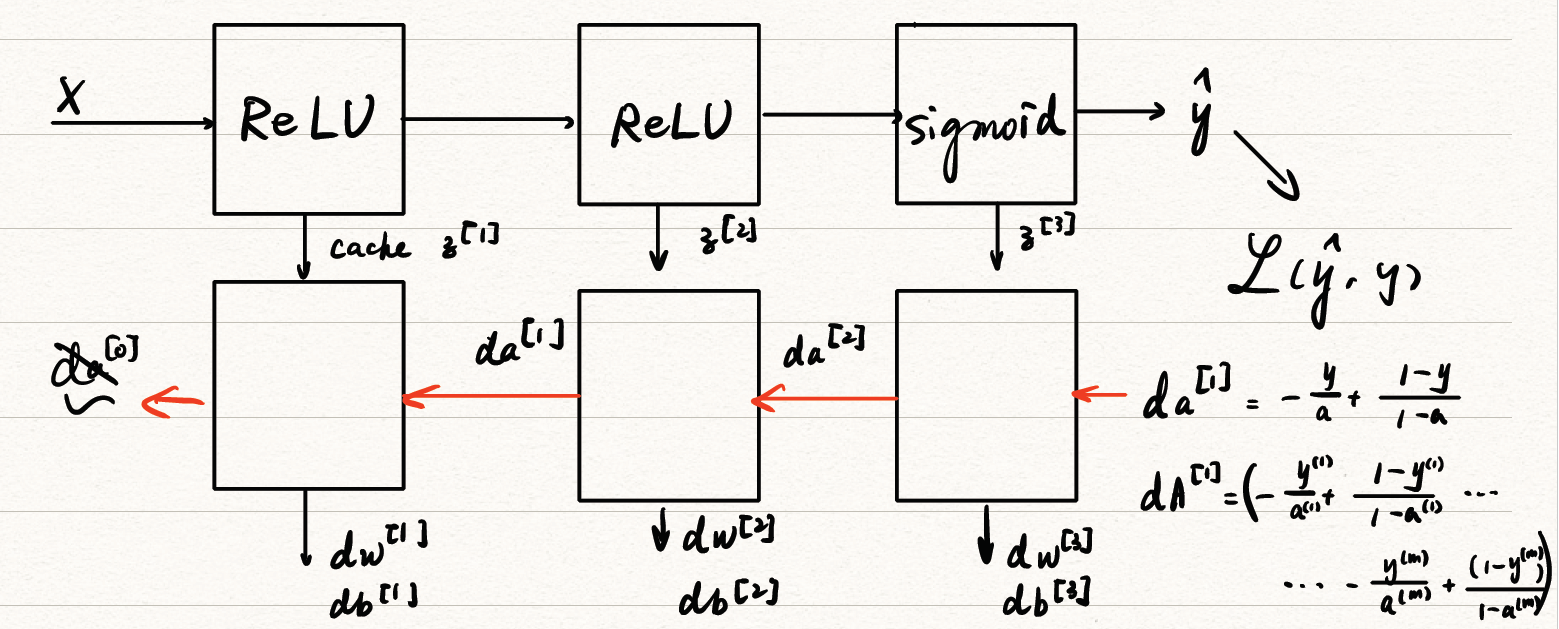 X
ReLU
ReLU
sigmoid
ŷ
cache z^[1]
z^[2]
z^[3]
ℒ(ŷ, y)
da^[0]
da^[1]
da^[2]
da^[1] = - y/a + (1-y)/(1-a)
dA^[1] = (- y^(1)/a^(1) + (1-y^(1))/(1-a^(1)) ...
... - y^(m)/a^(m) + (1-y^(m))/(1-a^(m)))
dw^[1]
db^[1]
dw^[2]
db^[2]
dw^[3]
db^[3]